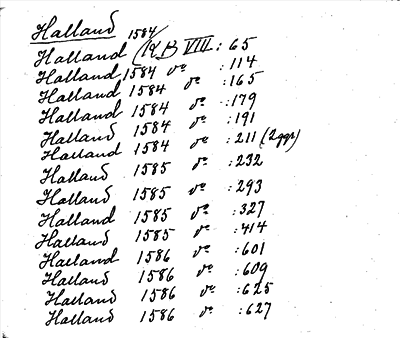 Halland
Halland 1584 (K B VIII : 65
Halland 1584 do : 114
Halland 1584 do : 165
Halland 1584 do : 179
Halland 1584 do : 191
Halland 1584 do : 211 (2ggr)
Halland 1585 do : 232
Halland 1585 do : 293
Halland 1585 do : 327
Halland 1585 do : 414
Halland 1586 do : 601
Halland 1586 do : 609
Halland 1586 do : 625
Halland 1586 do : 627